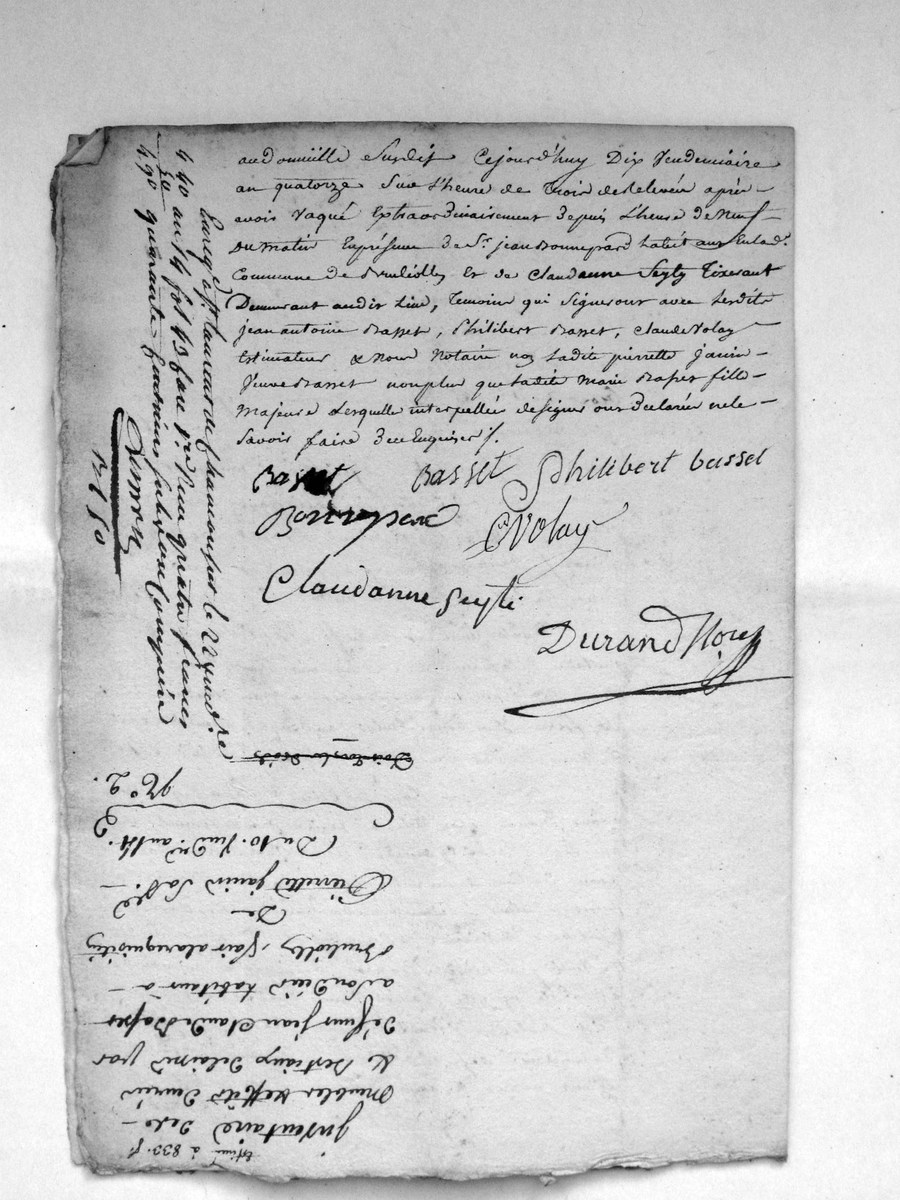 audomicille susdit Cejourd'huy Dix Vendemiaire
an quatorze sur l'heure de Trois de Relevée après
avoir Vaqué Extraordinairement depuis l'heure de Neuf
Du matin En présence de Sr. jean Bonnepard habitant En lad.
Commune de Brulliolles Et de Claudanne Seyty Tixerant
Demeurant audit Lieu, Temoins qui signeront avec lesdits
jean antoine Basset, Philibert Basset, Claude Volay
Estimateur & Nous Notaire non ladite pierrette janin
Veuve Basset non plus que ladite Marie Basset fille
Majeure Lesquelles interpellées de signer ont Declarées ne le
Savoir faire De ce Enquises /.
Basset Basset Philibert basset
Bonnepard
C Volay
Claudanne Seyti
Durand Nore
Enreg. à St. laurent de Chamousset le 22 Vendre
an 14 fol. 43 Case 1re Reçu quatre francs
quarante Centimes subvention Comprise
4 40
40
4 90
Nº 2.
inventaire de
Meubles & effets Denrées
& Bestiaux Delaissés par
Défunt jean Claude Basset
habitant à
Brulliolles, fait a la requisition
De
Pierrette janin Sa Ve
Du 10. Vend. an 14.
Estimé à 833 f.